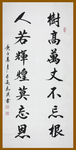 樹高萬丈不忘根
人若輝煌莫忘恩